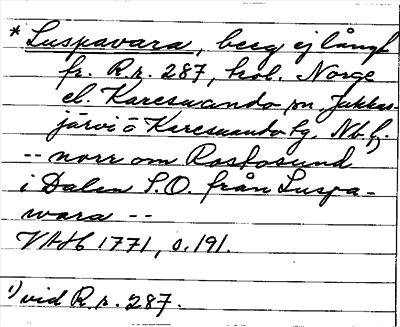 * Luspavara, berg ej långt
fr. R.r. 287, trol. Norge
el. Karesuando sn, Jukkas-
järvi o Karesuando tg, Nb.l.
-- norr om Rostosund
i Dalen S.O. från Luspa-
wara --
VAH 1771, s. 191.
1) vid R.r. 287.